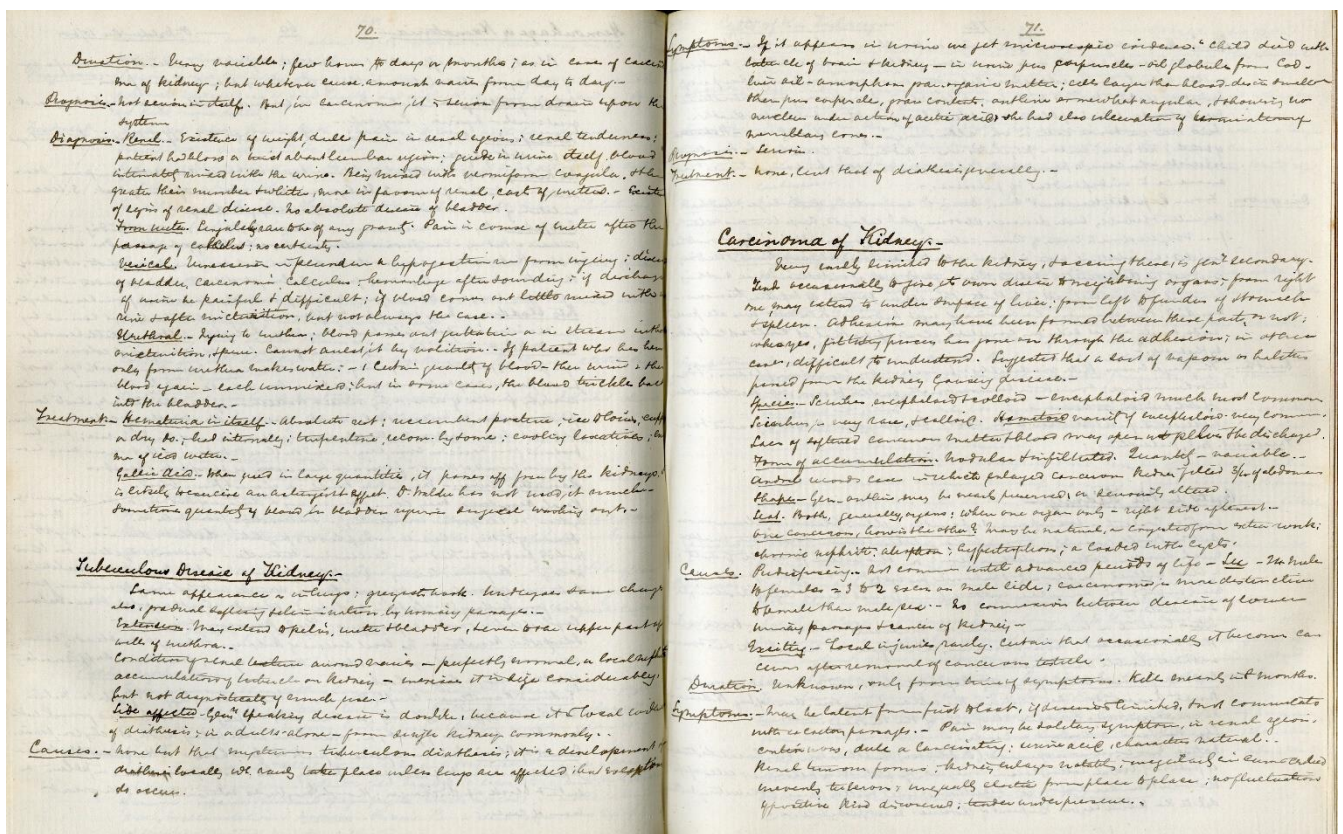 70.
Duration. - Very variable; few hours to days or months; as in case of carcino
ma of kidney; but whatever cause amount varies from day to day. -
Prognosis. - Not serious in itself. But, in carcinoma, it is serious from drain upon the
system
Diagnosis. - Renal. - Existence of weight, dull pain in renal regions; renal tenderness;
patient had blow or twist about lumbar region; guide is urine itself, blood
intimately mixed with the urine. Being mixed with vermiform coagula. &
greater their number & whiter, more in favour of renal, cast of ureters. -
of signs of renal disease. No absolute disease of bladder.
From ureter. Pain in course of ureter after the
passage of calculus; no certainty.
Vesical. Uneasiness in perineum & hypogastrium from urging; disease
of bladder, carcinoma, calculus; hemorrhage after sounding; if discharge
of urine be painful & difficult; if blood comes out little mixed with
urine & after micturition, but not always the case.
Urethral. - Injury to urethra; blood passes out guttatim or in stream without
micturition, spasm. Cannot arrest it by volition. - If patient who has hem
only from urethra makes water: - 1 certain quantity of blood - then urine & then
blood again - each unmixed; but in some cases, the blood trickles back
into the bladder. -
Treatment. - Hematuria in itself. - Absolute rest; recumbent posture, ice to loins, cupp
or dry do. - lead internally; turpentine recom. by some; cooling laxatives;
use of iced water. -
Gallic Acid. - When used in large quantities, it passes off from by the kidneys &
is likely to exercise an astringent effect. D. has not used it much. -
Sometimes quantity of blood in bladder requires surgical washing out. -
Tuberculous Disease of Kidney. -
Same appearance as in lungs; greyest hook. Undergoes same changes
also, gradual softening & elimination by urinary passages. -
Extension. May extend to pelvis, ureter & bladder, & even to upper part of
walls of urethra. -
Condition of renal texture around varies - perfectly normal, or local nephritis
accumulation of tubercle in kidney - increases it in size considerably,
but not diagnostically of much use. -
Side affected - Genly speaking disease is double, because it is local evidence
of diathesis; in adults alone - from single kidney commonly. -
Causes. - None but that mysterious tuberculous diathesis; it is a development of
diathesis locally wh. rarely takes place unless lungs are affected; but exceptions
do occur.
71.
Symptoms. - If it appears in urine we get microscopic evidence. Child died with
tubercle of brain & kidney - in urine pus corpuscles - oil globules from Cod-
liver oil - amorphous gran. organic matter; cells larger than blood discs smaller
than pus corpuscle, gran contents, outline somewhat angular, & showing no
nucleus under action of acetic acid; she had also ulceration of termination of
mamillary cones. -
Prognosis. - Serious.
Treatment. - None, but that of diathesis generally. -
Carcinoma of Kidney. -
Very rarely limited to the kidney, & occurring there, is genl. secondary.
Tends occasionally to give its own disease to neighbouring organs; from right
one may extend to under surface of liver; from left to fundus of stomach
& spleen. Adhesion may have been formed between these parts, or not;
when yes, filtrating process has gone on through the adhesions; in other
cases, difficult to understand. Suggested that a sort of vapour or halitus
passed from the kidney causing disease. -
Species. - Scirrhus, encephaloid & colloid - encephaloid much most common
Scirrhus, is very rare, & colloid. Hematoid variety of encephaloid very common.
Sacs of softened cancerous matter & blood may open into pelvis & be discharged.
Form of accumulation. Nodular & infiltrated. Quantity - variable. -
Andral records case in which enlarged cancerous kidney filled 3/4 of abdomen
Shape. - Gen. outline may be nearly preserved, or seriously altered.
Seat. Both, generally, organs; when one organ only - right side oftenest. -
One cancerous, how is the other? May be natural, or congested from extra work;
chronic nephritis, atrophy; hypertrophous; or loaded with cysts.
Causes. Predisposing. - Not common until advanced periods of life - Sex - In males
to females = 3 to 2 even on male side; carcinoma is more destructive
to female than male sex. - No connexion between disease of lower
urinary passages & cancer of kidney -
Exciting - Local injuries, rarely. Certain that occasionally it becomes can
cerous after removal of cancerous testicle. -
Duration. Unknown, only from time of symptoms. Kills means in months.
Symptoms. - May be latent from first to last, if disease limited, & not communicate
with excretory passages. - Pain may be solitary symptom, in renal region,
continuous, dull or lancinating; urine acid, characters natural. -
Renal tumour forms; kidney enlarges notably;
unevenly tuberous; unequally elastic from place to place; no fluctuation
of positive kind discovered; tender under pressure. -